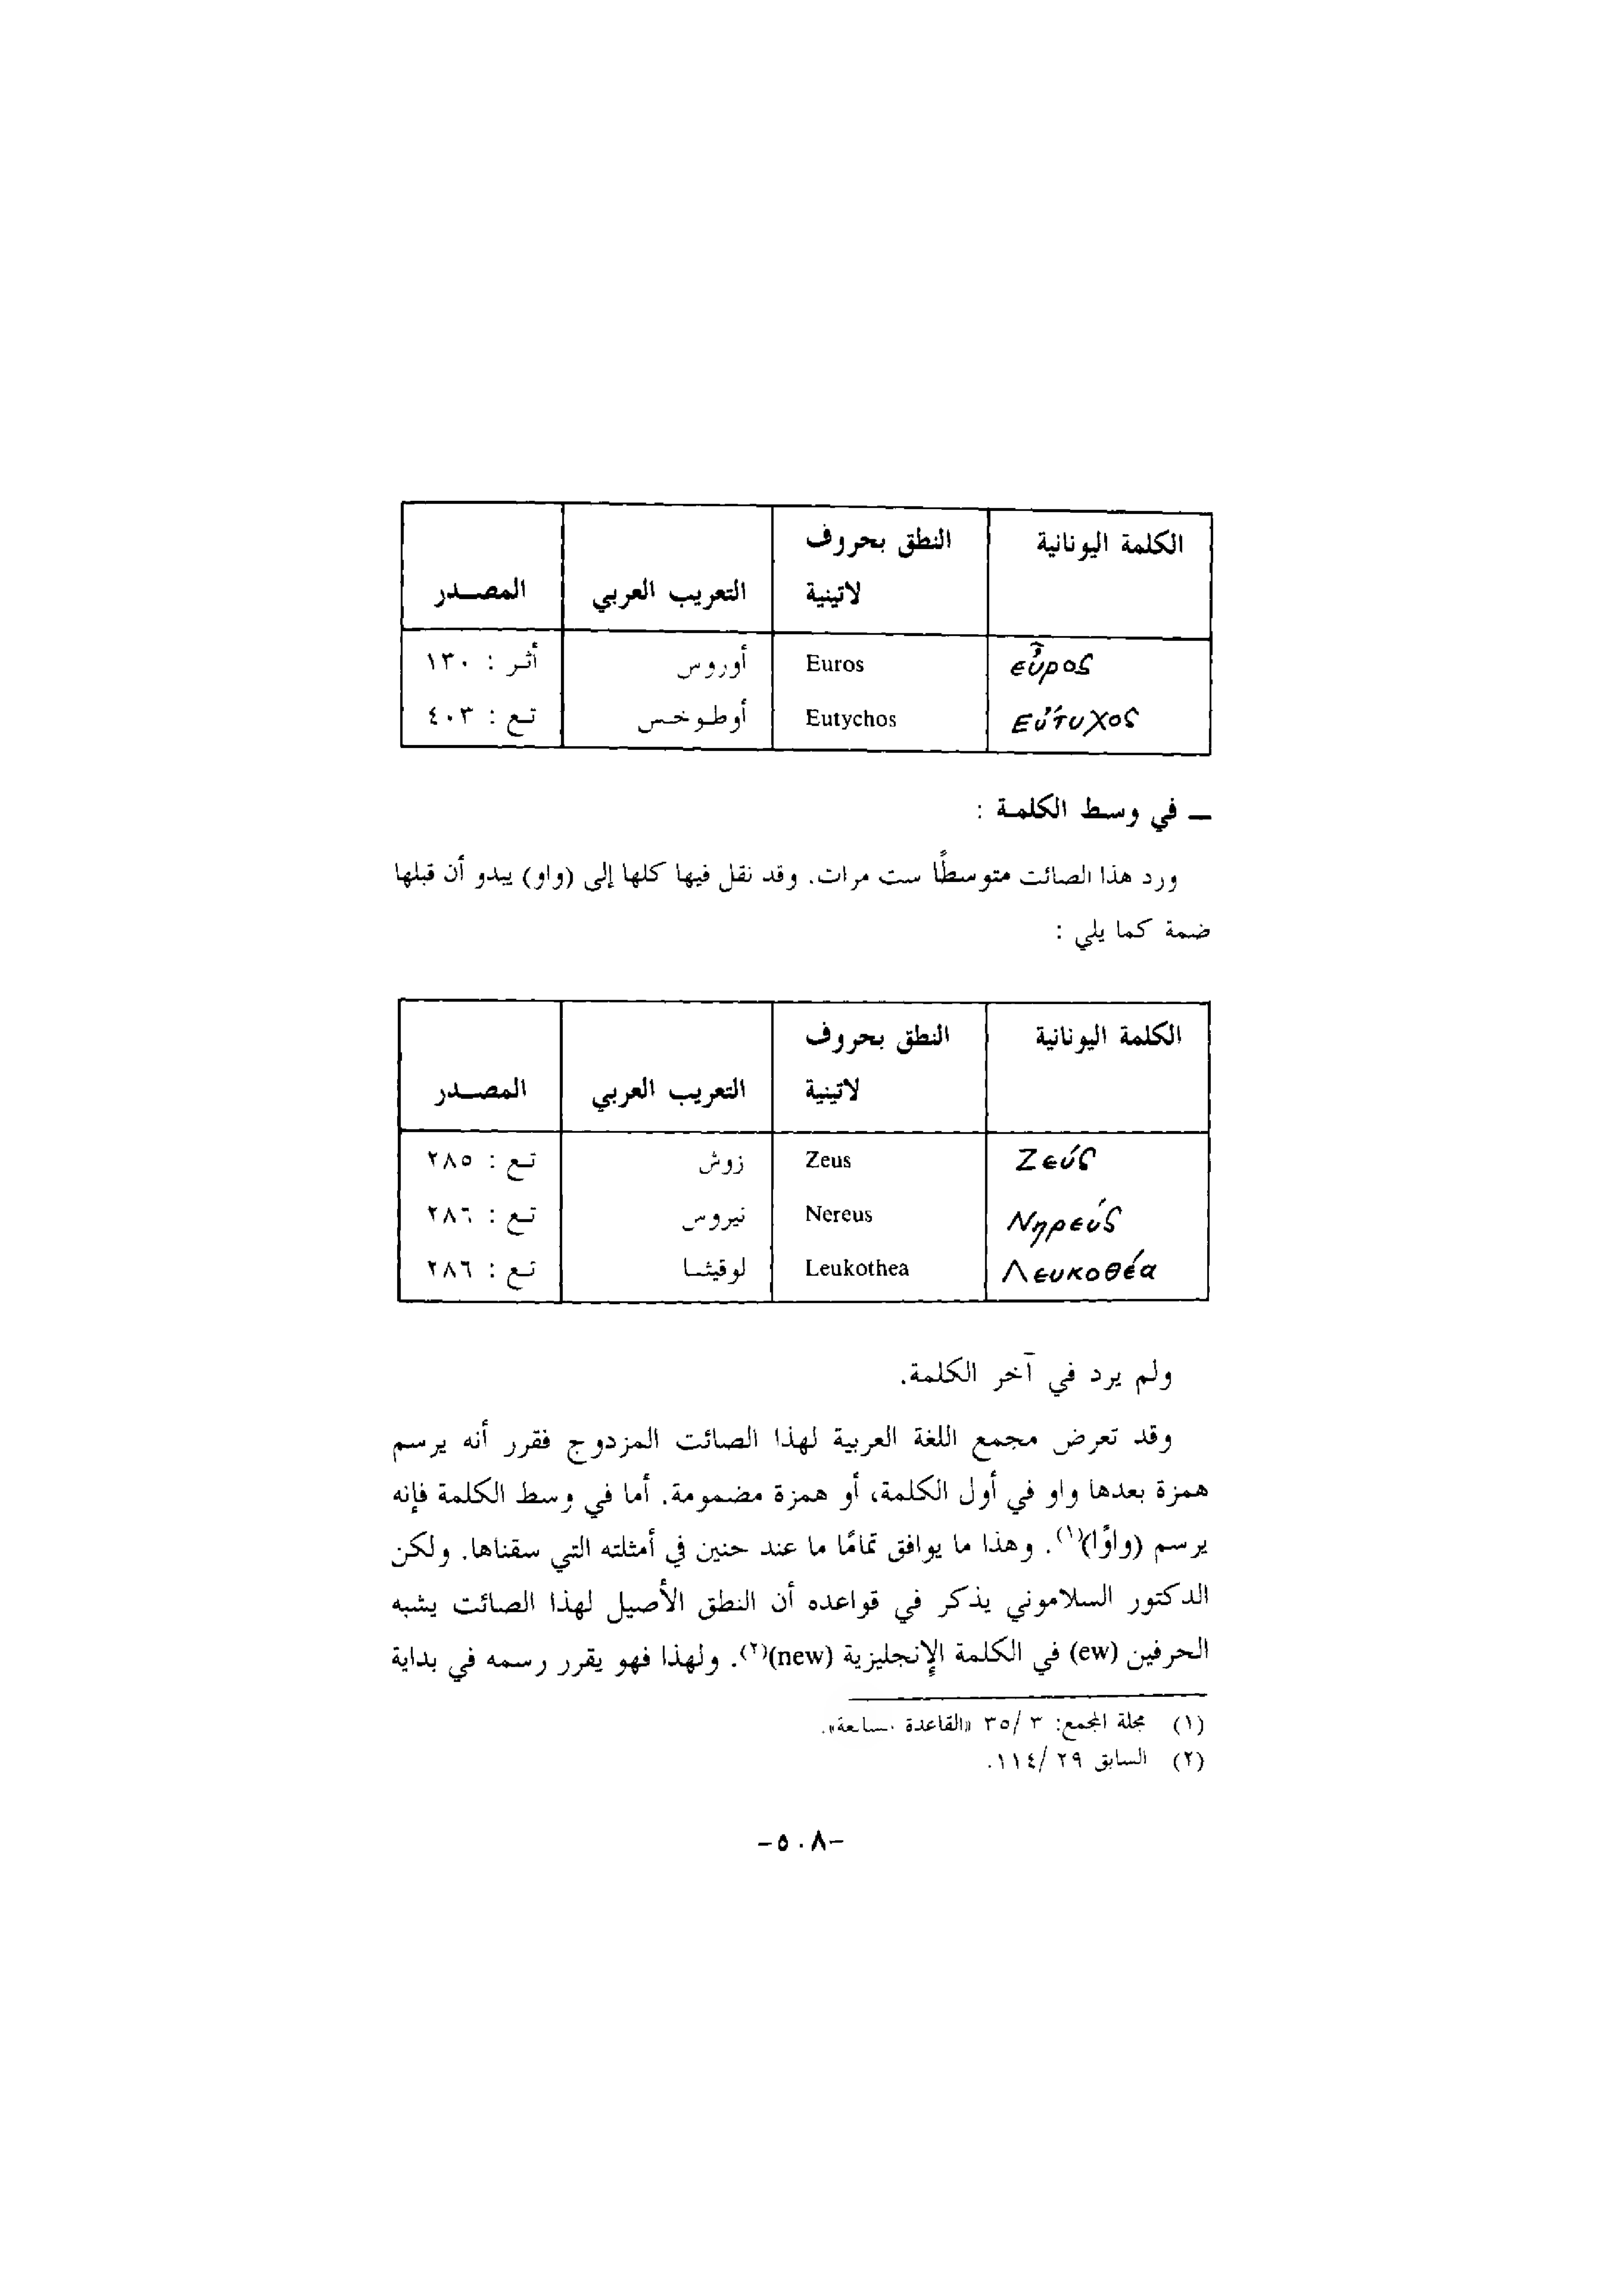 الكلمة اليونانية النطق بحروف لاتينية التعريب العربي المصدر
εὖρος Euros أوروس أثر : ١٣٠
Εὐτυχος Eutychos أوطوخس تع : ٤٠٣
— في وسط الكلمة :
ورد هذا الصائت متوسطًا ست مرات. وقد نقل فيها كلها إلى (واو) يبدو أن قبلها
ضمة كما يلي :
الكلمة اليونانية النطق بحروف لاتينية التعريب العربي المصدر
Ζεύς Zeus زوش تع : ٢٨٥
Νηρεύς Nereus نيروس تع : ٢٨٦
Λευκοθέα Leukothea لوقيثا تع : ٢٨٦
ولم يرد في آخر الكلمة.
وقد تعرض مجمع اللغة العربية لهذا الصائت المزدوج فقرر أنه يرسم
همزة بعدها واو في أول الكلمة، أو همزة مضمومة. أما في وسط الكلمة فإنه
يرسم (واوًا)(١). وهذا ما يوافق تمامًا ما عند حنين في أمثلته التي سقناها. ولكن
الدكتور السلاموني يذكر في قواعده أن النطق الأصيل لهذا الصائت يشبه
الحرفين (ew) في الكلمة الإنجليزية (new)(٢). ولهذا فهو يقرر رسمه في بداية
(١) مجلة المجمع: ٣ /٣٥ «القاعدة
(٢) السابق ٢٩ /١١٤.
-٥٠٨-